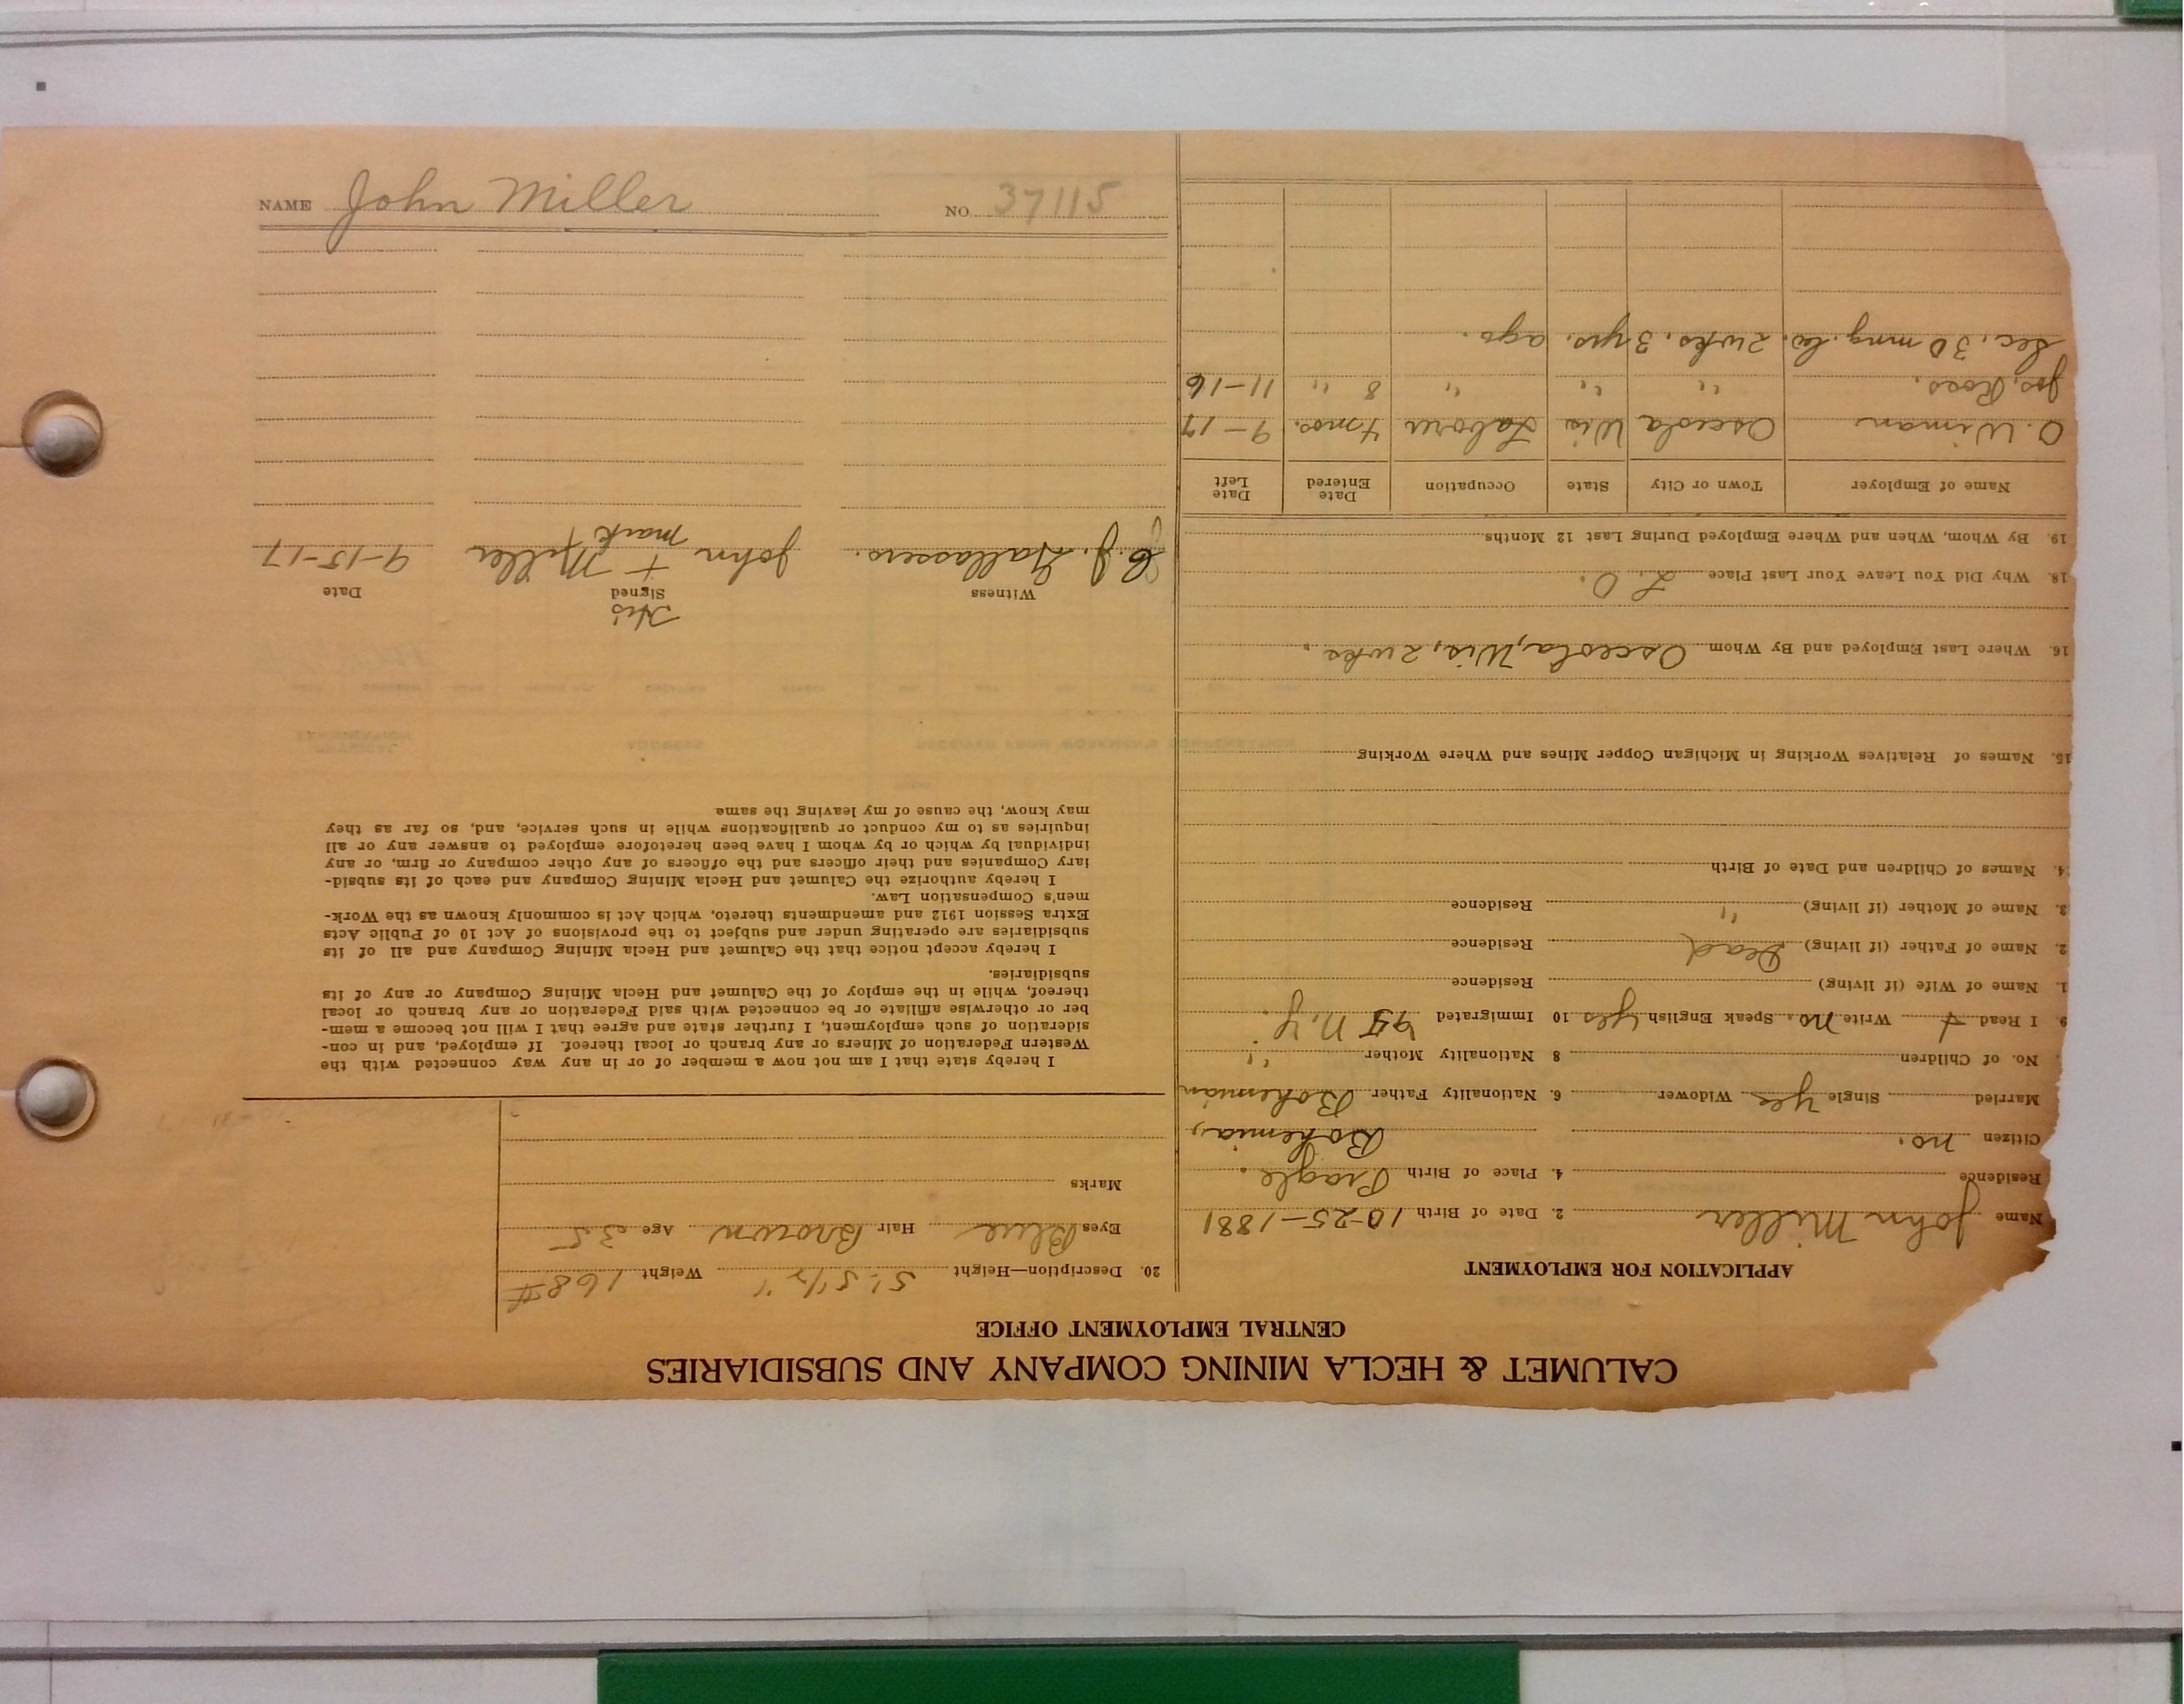 NAME John Miller NO. 37115
CALUMET & HECLA MINING COMPANY AND SUBSIDIARIES
CENTRAL EMPLOYMENT OFFICE
APPLICATION FOR EMPLOYMENT
Name John Miller 2. Date of Birth 10-25-1881
Residence 4. Place of Birth Pragle.
Citizen no. Bohemia,
Married Single yes Widower 6. Nationality Father Bohemian
No. of Children 8 Nationality Mother "
9. I Read + Write no. Speak English yes 10 Immigrated N.Y.
1. Name of Wife (if living) Residence
2. Name of Father (if living) Dead Residence
3. Name of Mother (if living) " Residence
4. Names of Children and Date of Birth
15. Names of Relatives Working in Michigan Copper Mines and Where Working
16. Where Last Employed and By Whom Osceola, Wis, 2 wks.
18. Why Did You Leave Your Last Place L. O.
19. By Whom, When and Where Employed During Last 12 Months
Name of Employer Town or City State Occupation Date Entered Date Left
O. Wiman Osceola Wis Laborer 4 mos. 9-17
Jos. Ross. " " " 8 " 11-16
Sec. 30 mng. Co. 2 wks. 3 yrs. ago.
20. Description—Height 5' 5 1/2" Weight 168 #
Eyes Blue Hair Brown Age 35
Marks
I hereby state that I am not now a member of or in any way connected with the
Western Federation of Miners or any branch or local thereof. If employed, and in con-
sideration of such employment, I further state and agree that I will not become a mem-
ber or otherwise affiliate or be connected with said Federation or any branch or local
thereof, while in the employ of the Calumet and Hecla Mining Company or any of its
subsidiaries.
I hereby accept notice that the Calumet and Hecla Mining Company and all of its
subsidiaries are operating under and subject to the provisions of Act 10 of Public Acts
Extra Session 1912 and amendments thereto, which Act is commonly known as the Work-
men's Compensation Law.
I hereby authorize the Calumet and Hecla Mining Company and each of its subsid-
iary Companies and their officers and the officers of any other company or firm, or any
individual by which or by whom I have been heretofore employed to answer any or all
inquiries as to my conduct or qualifications while in such service, and, so far as they
may know, the cause of my leaving the same.
His
Witness Signed Date
C. J. John + Miller 9-15-17
mark